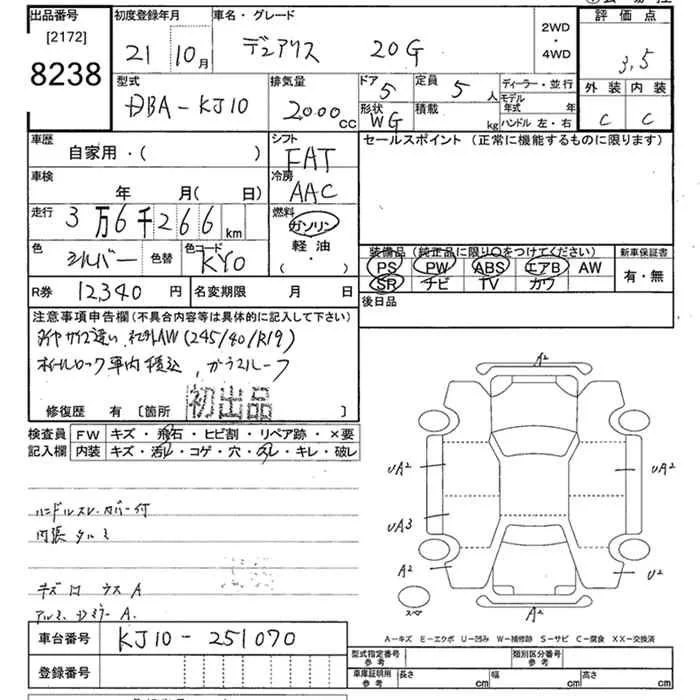 出品番号
[2172]
8238
初度登録年月
21 10月
車名・グレード
デュアリス 20G
2WD
・
4WD
評価点
3,5
外装 内装
C C
型式
DBA-KJ10
排気量
2000cc
ドア
5
形状
WG
定員
5人
積載
kg
ディーラー・並行
モデル年式 年
ハンドル 左・右
車歴
自家用・( )
シフト
FAT
セールスポイント (正常に機能するものに限ります)
車検
年 月( 日)
冷房
AAC
走行
3万6千266km
燃料
ガソリン
軽油
( ・ )
色
シルバー
色替
色コード
KY0
装備品 (純正品に限り○をつけてください)
PS PW ABS エアB AW
SR ナビ TV カワ
新車保証書
有・無
R券 12,340円
名変期限 月 日
後日品
注意事項申告欄 (不具合内容等は具体的に記入して下さい)
タイヤサイズ違い、社外AW(245/40/R19)
ホイールロック車内積込、ガラスルーフ
修復歴 有 [箇所 ]
初出品
検査員
記入欄
FW キズ・飛石・ヒビ割・リペア跡・×要
内装 キズ・汚レ・コゲ・穴・スレ・キレ・破レ
ハンドルスレ・カバー付
内張タルミ
A²
UA²
UA²
UA3
A²
U²
スペア
A²
A-キズ E-エクボ U-凹み W-補修跡 S-サビ C-腐食 XX-交換済
車台番号 KJ10-251070
登録番号
型式指定番号
参考
類別区分番号
参考
車庫証明用
参考
長さ cm
幅 cm
高さ cm